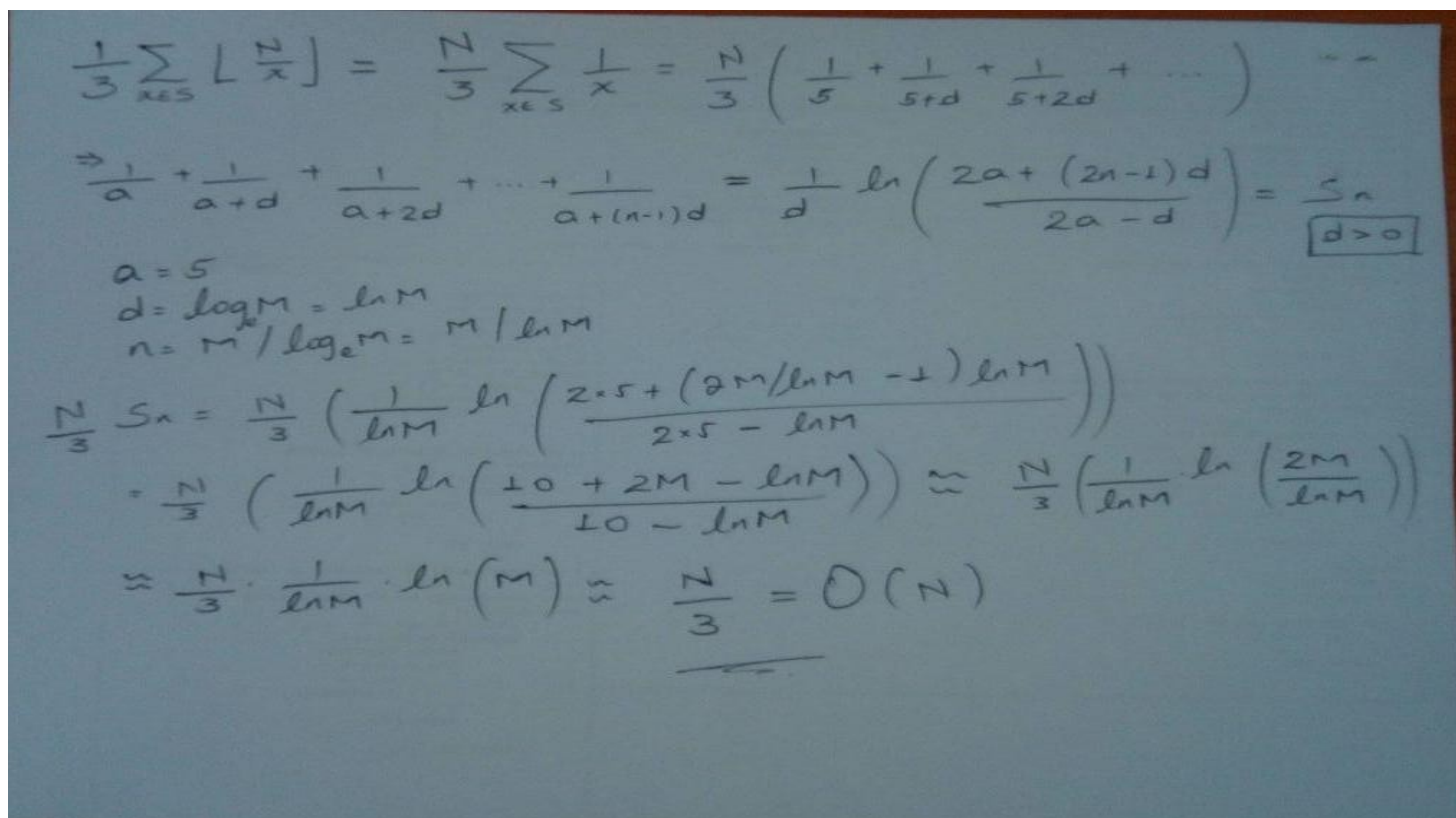 1/3 ∑_{x∈S} ⌊N/x⌋ = N/3 ∑_{x∈S} 1/x = N/3 ( 1/5 + 1/(5+d) + 1/(5+2d) + ... ) --
⇒ 1/a + 1/(a+d) + 1/(a+2d) + ... + 1/(a+(n-1)d) = 1/d ln( (2a + (2n-1)d) / (2a - d) ) = Sn
d>0
a = 5
d = log_e M = ln M
n = M / log_e M = M / ln M
N/3 Sn = N/3 ( 1/lnM ln( (2×5 + (2M/lnM - 1) lnM) / (2×5 - lnM) ) )
= N/3 ( 1/lnM ln( (10 + 2M - lnM) / (10 - lnM) ) ) ≈ N/3 ( 1/lnM ln( 2M / lnM ) )
≈ N/3 · 1/lnM · ln(M) ≈ N/3 = O(N)